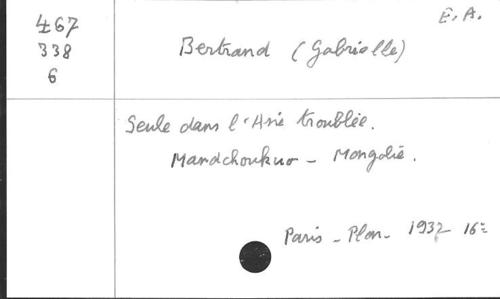 467
338
6
E. A.
Bertrand (Gabrielle)
Seule dans l'Asie troublée.
Mandchoukuo - Mongolie.
Paris - Plon - 1937 16=